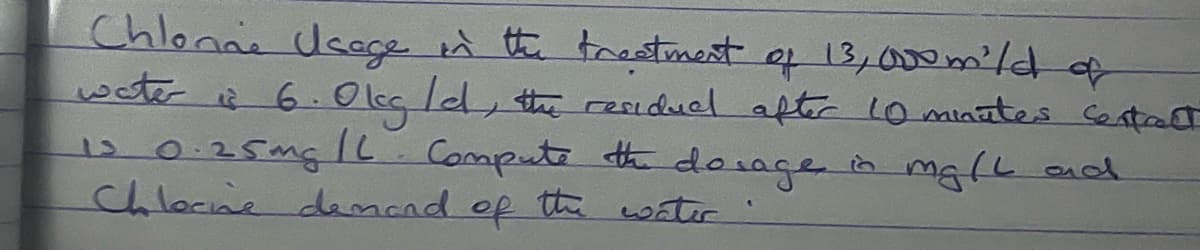 Chlorine Usage in the treatment of 13,000m³/d of
water is 6.0kg/d, the residual after 10 minutes contact
is 0.25mg/L. Compute the dosage in mg/L and
Chlorine demand of the water.